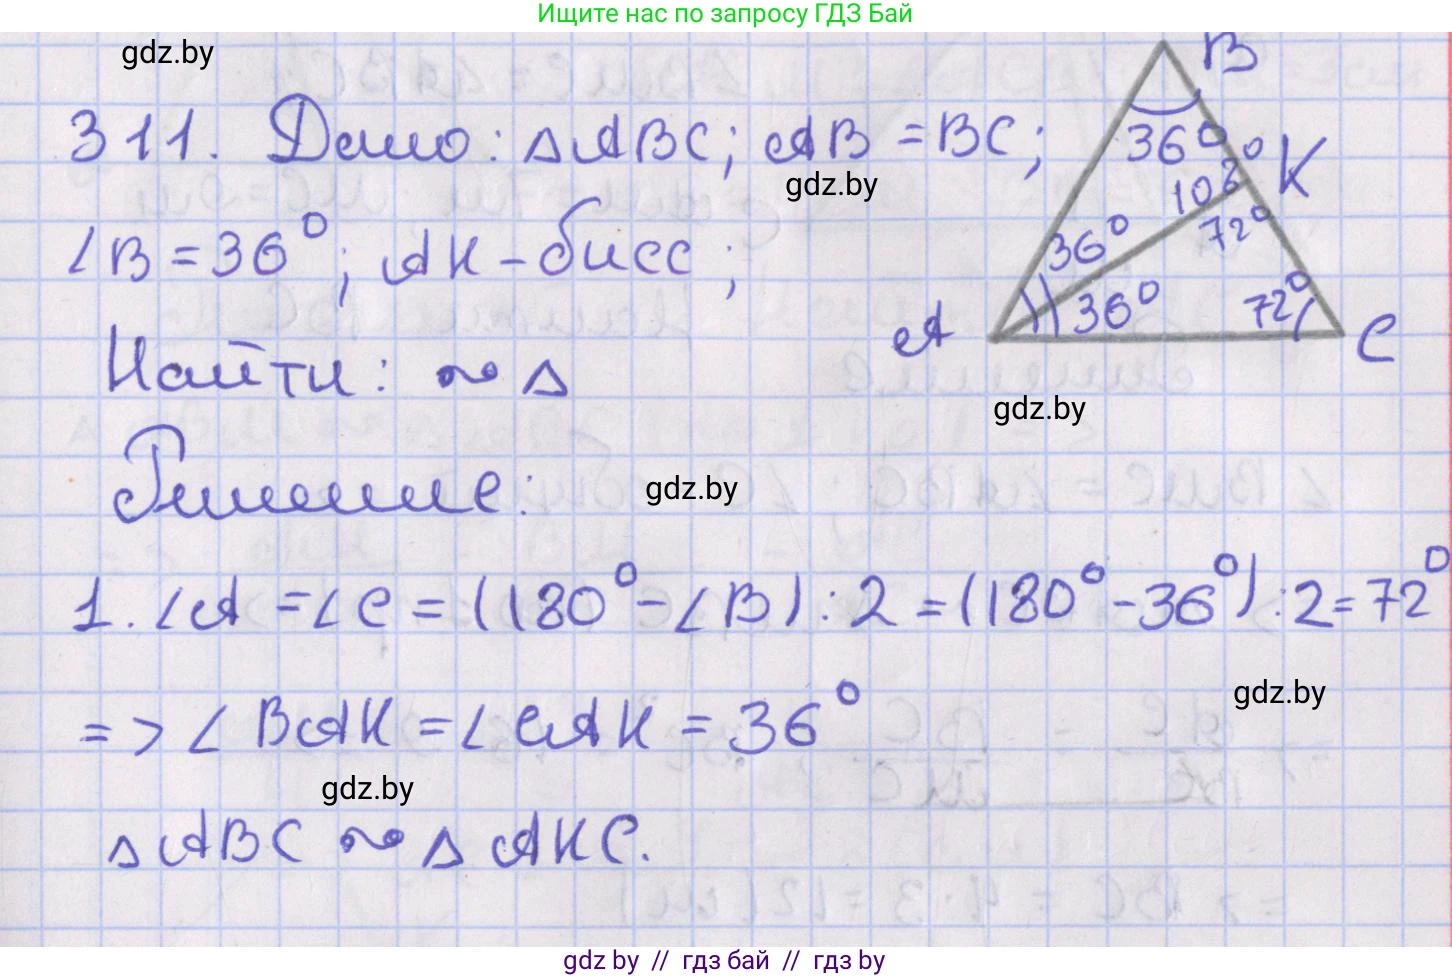 Ищите нас по запросу ГДЗ Бай
gdz.by
311. Дано: △ABC; AB = BC;
gdz.by
∠B = 36°; AK - бисс;
Найти: ~ △
B
36°
K
108°
72°
36°
36°
72°
A
C
gdz.by
Решение:
gdz.by
1. ∠A = ∠C = (180° - ∠B) : 2 = (180° - 36°) : 2 = 72°
gdz.by
=> ∠BAK = ∠CAK = 36°
gdz.by
△ABC ~ △AKC.
gdz.by // гдз бай // гдз by